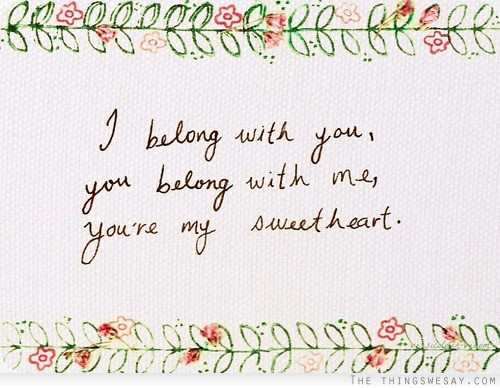 I belong with you,
you belong with me,
you're my sweetheart.
THE THINGS WE SAY.COM